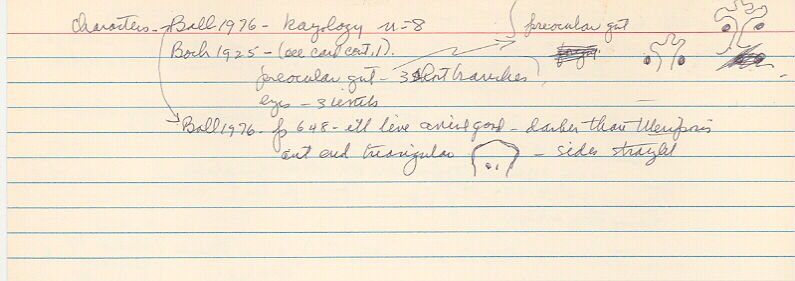 characters - Ball 1976 - karyology n=8
preocular gut
Bock 1925 - (see card cont. 1).
preocular gut - 3 short branches
eyes - 3 lentils
Ball 1976 - p 648 - ill live animal good - darker than
ant end triangular - sides straight